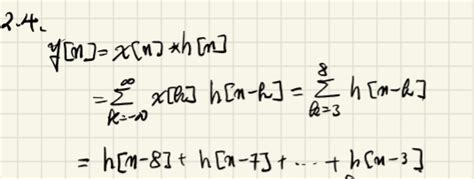 2.4.
y[n] = x[n] * h[n]
= ∑_{k=-∞}^{∞} x[k] h[n-k] = ∑_{k=3}^{8} h[n-k]
= h[n-8] + h[n-7] + ... + h[n-3]